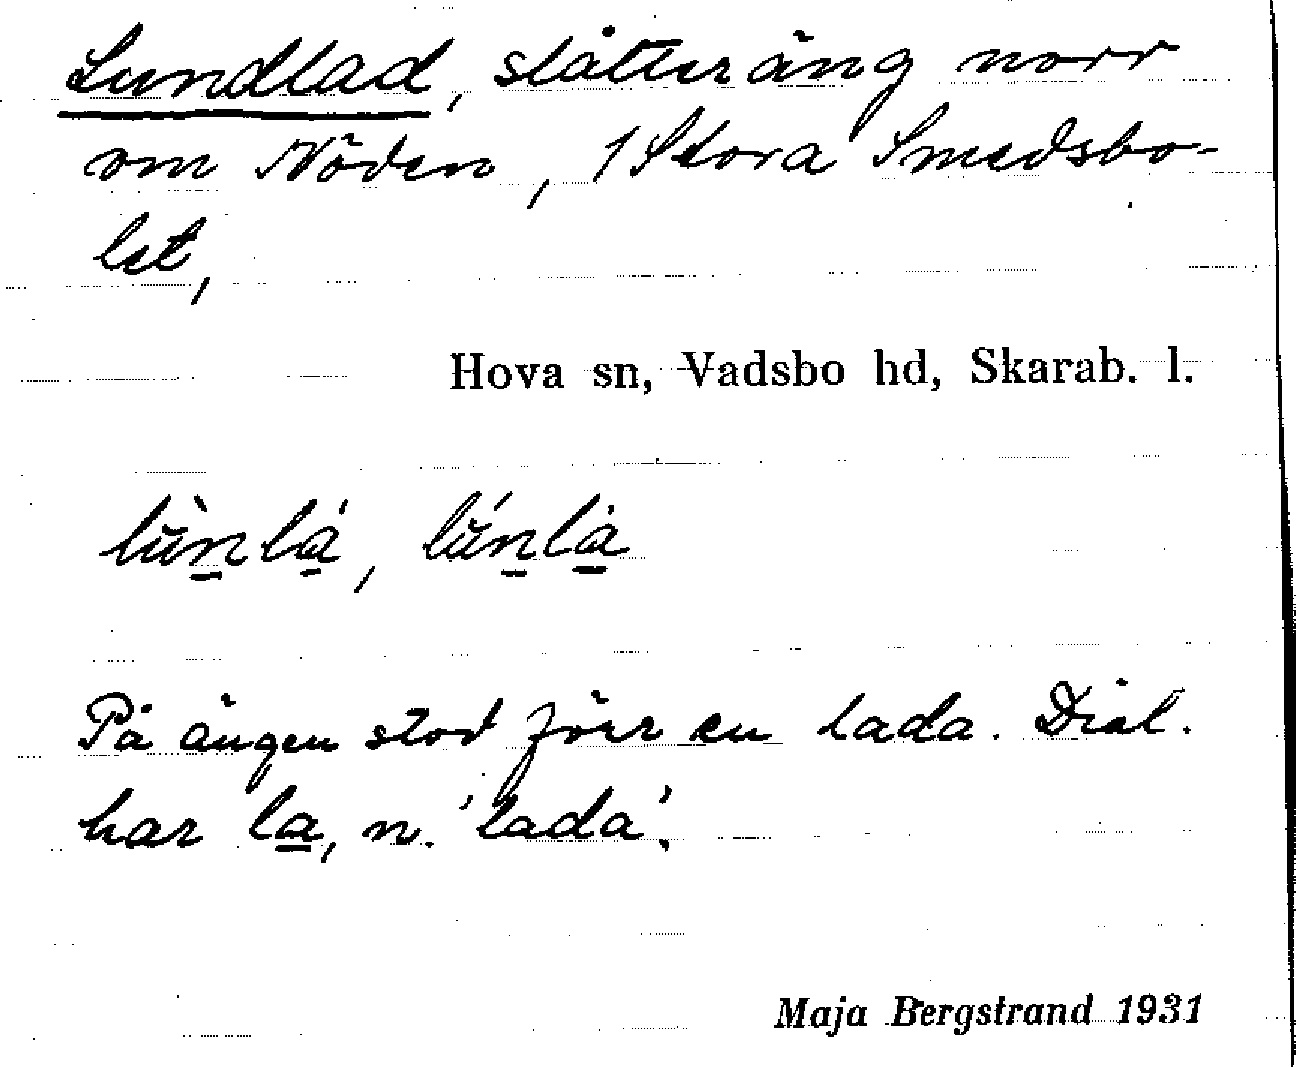 Lundlad, slåtteräng norr
om Nöden, 1 Stora Smedsbo-
let,
Hova sn, Vadsbo hd, Skarab. l.
lǔ̀n̲la̲̍, lǔ́n̲là̲
På ängen stod förr en lada. Dial.
har la̲, n. 'lada'.
Maja Bergstrand 1931